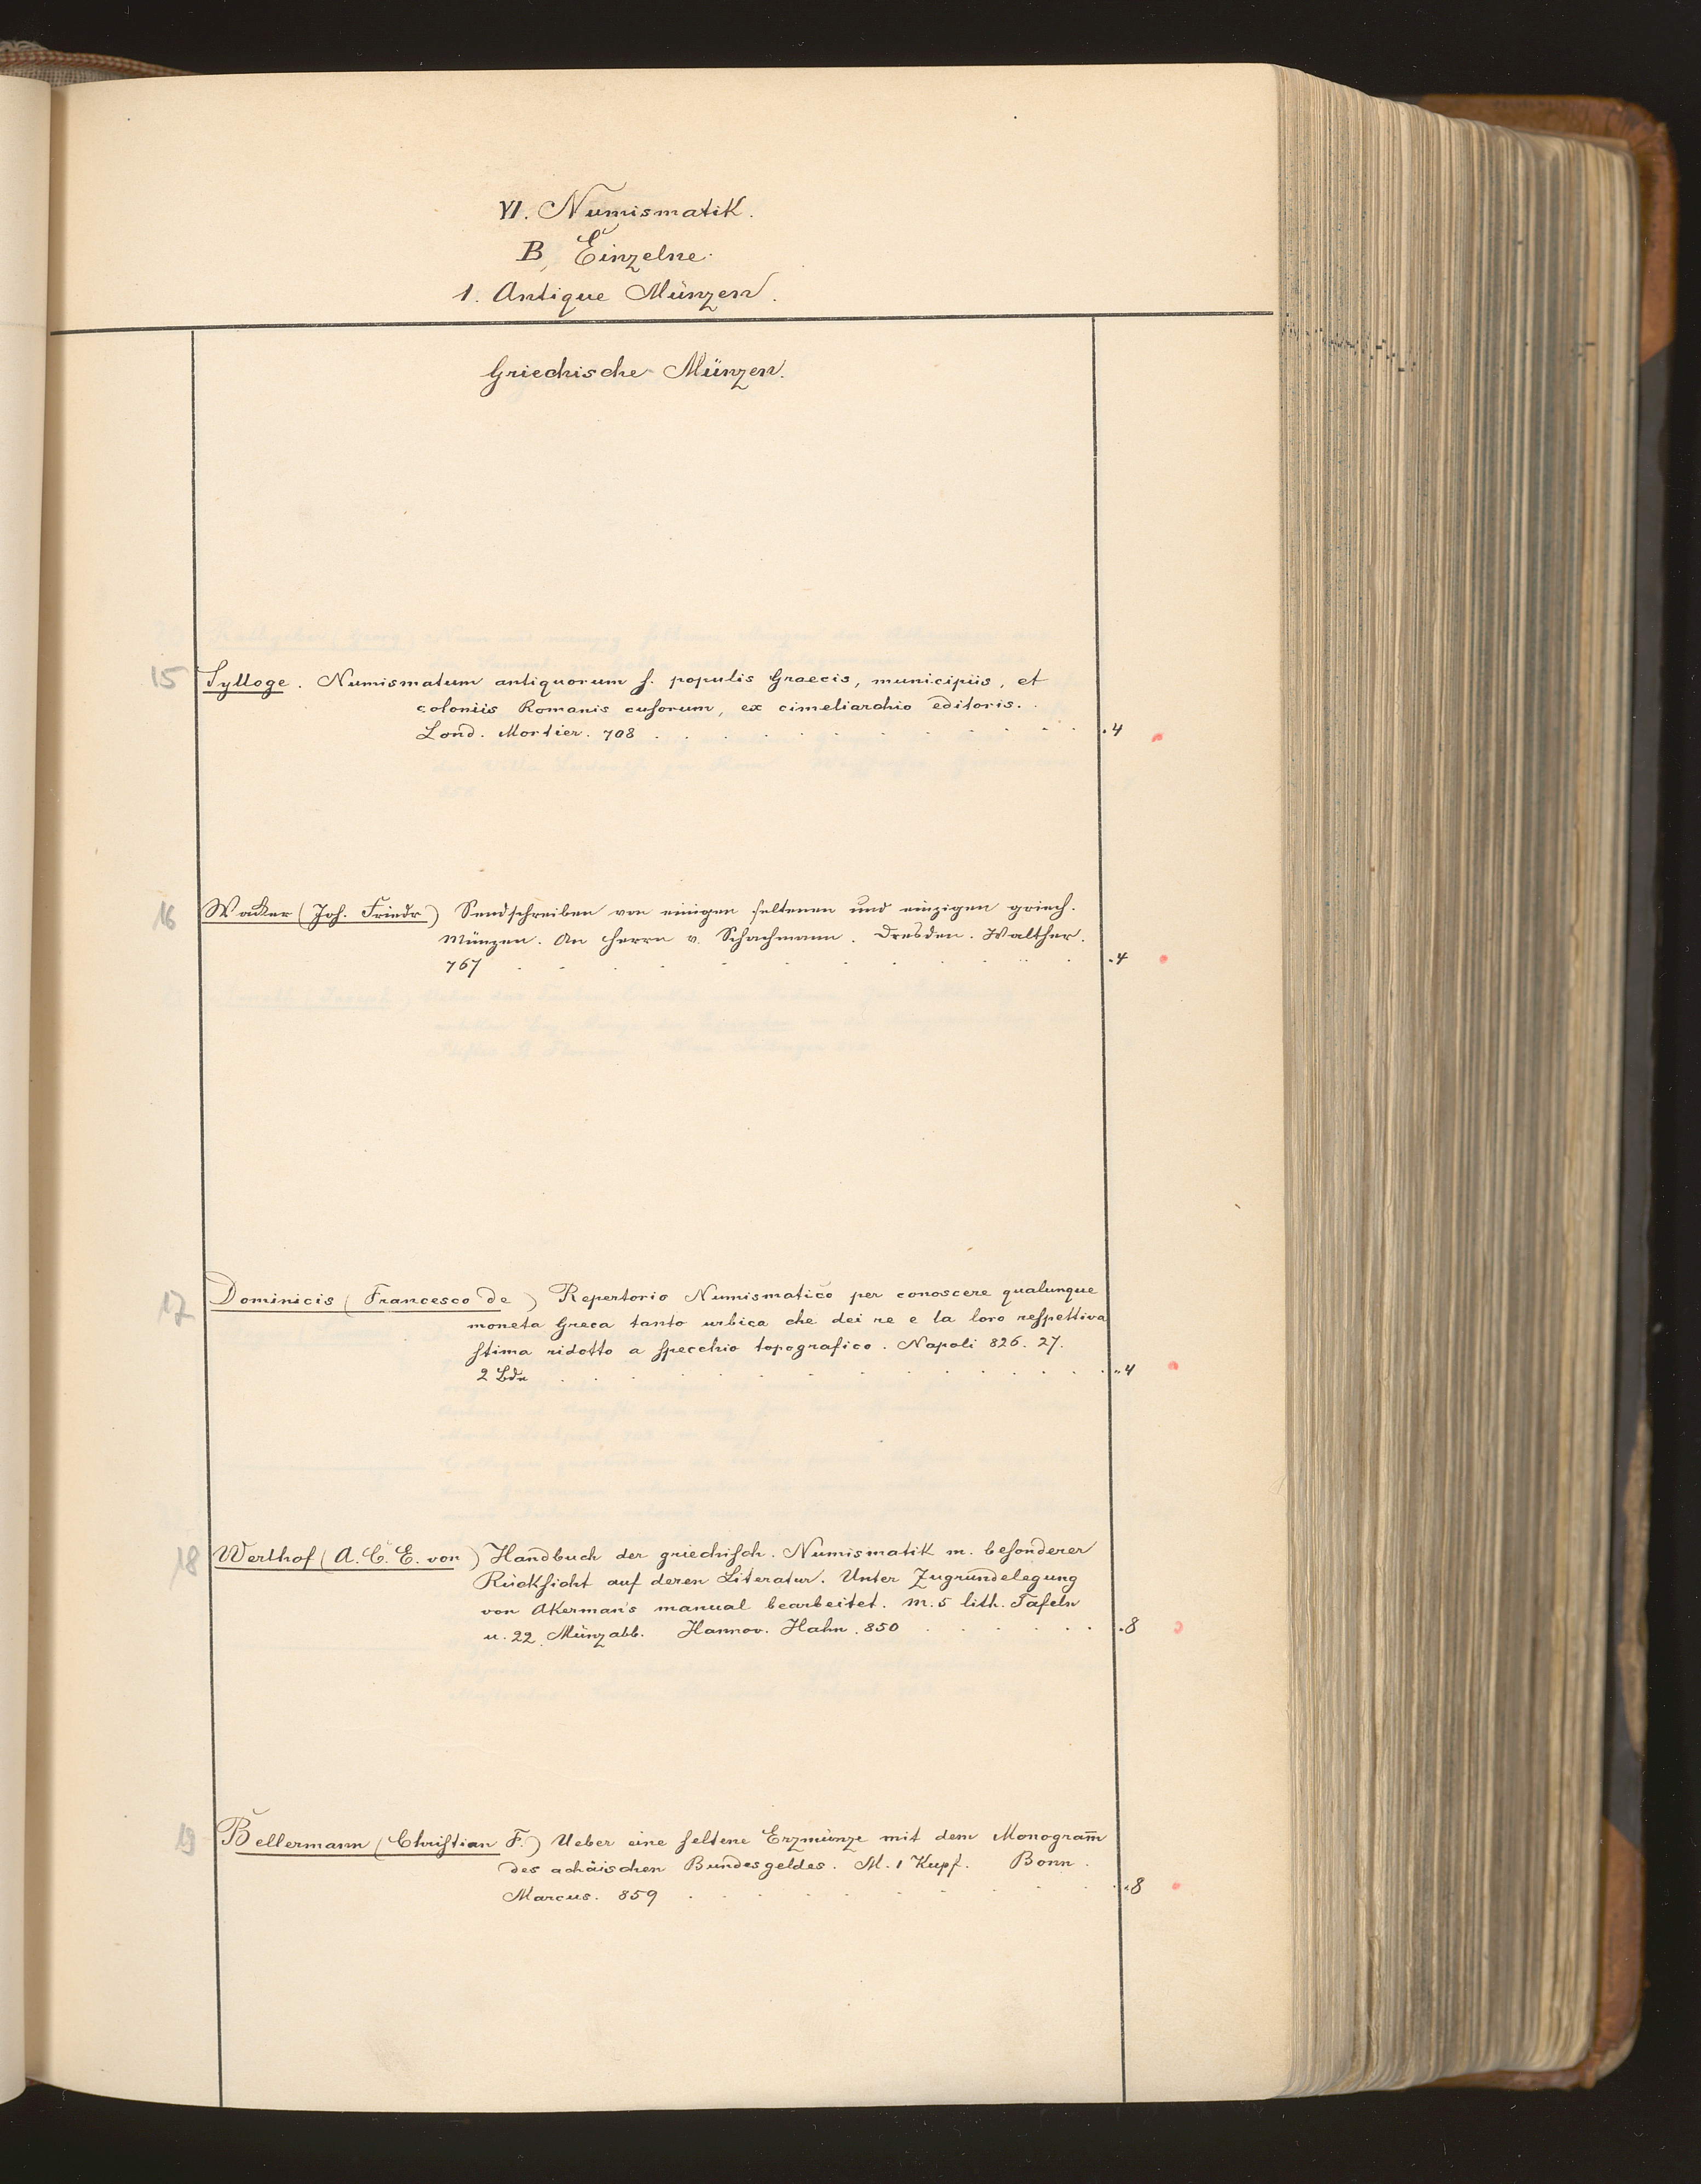 VI. Numismatik.
B, Einzelne.
1. Antique Münzen.
Griechische Münzen.
15 Sylloge. Numismatum antiquorum s. populis Graecis, municipiis, et
coloniis Romanis cusorum, ex cimeliarchio editoris.
Lond. Mortier. 708 . . . . . . . . . . .4
16 Wacker (Joh. Friedr) Sendschreiben von einigen seltenen und einzigen griech.
Münzen. An Herrn v. Schachmann. Dresden. Walther.
767 . . . . . . . . . . .4
17 Dominicis (Francesco de) Repertorio Numismatico per conoscere qualunque
moneta Greca tanto urbica che dei re e la loro respettiva
stima ridotto a specchio topografico. Napoli 826. 27.
2 Bde . . . . . . . . . . ..4
18 Werlhof (A. C. E. von) Handbuch der griechisch. Numismatik m. besonderer
Rücksicht auf deren Literatur. Unter Zugrundelegung
von Akerman's manual bearbeitet. m. 5 lith. Tafeln
u. 22 Münzabb. Hannov. Hahn. 850 . . . . . .8
19 Bellermann (Christian F.) Ueber eine seltene Erzmünze mit dem Monogram̄
des achäischen Bundesgeldes. M. 1 Kupf. Bonn.
Marcus. 859 . . . . . . . . .8